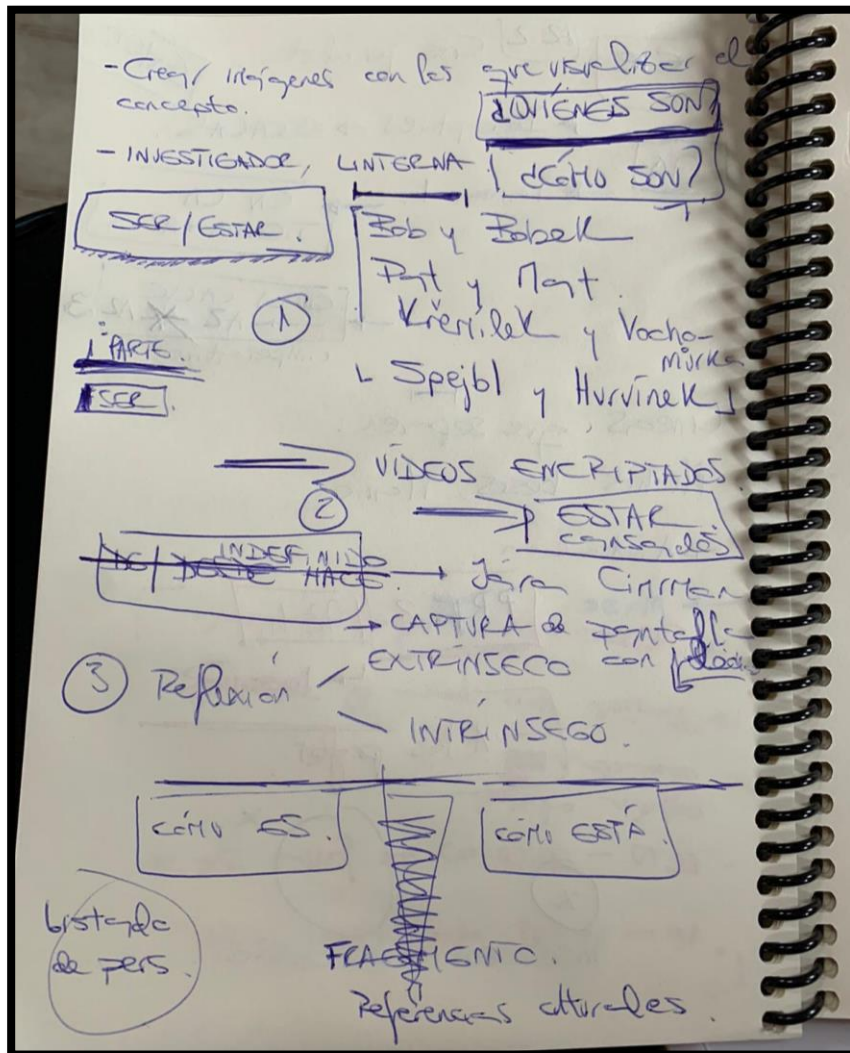 - Crear imágenes con las que visualizar el
concepto.
¿QUIÉNES SON?
- INVESTIGADOR, LINTERNA
¿CÓMO SON?
SER/ESTAR.
Bob y Bobek
Pat y Mat.
①
Křemílek y Vocho-
můrka
1ª PARTE.
SER.
Spejbl y Hurvínek
VÍDEOS ENCRIPTADOS.
②
ESTAR
cansados
INDEFINIDO
DE/DESDE HACE.
→ Jára Cimrman
→ CAPTURA de pantalla
EXTRÍNSECO con
③ Reflexión
INTRÍNSEGO.
CÓMO ES.
CÓMO ESTÁ.
listado
de pers.
FRAGMENTO.
Referencias culturales.